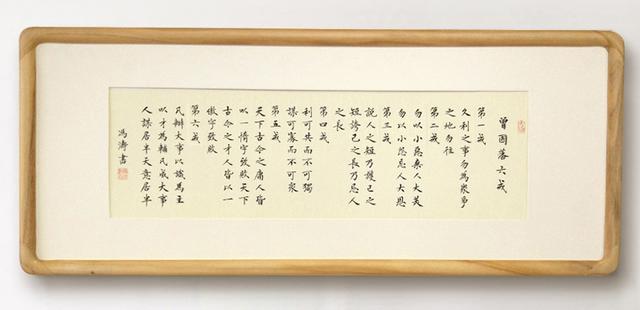 曾國藩六戒
第一戒
久利之事勿為衆爭
之地勿往
第二戒
勿以小惡棄人大美
勿以小怨忘人大恩
第三戒
說人之短乃護己之
短誇己之長乃忌人
之長
第四戒
利可共而不可獨
謀可寡而不可衆
第五戒
天下古今之庸人皆
以一惰字致敗天下
古今之才人皆以一
傲字致敗
第六戒
凡辦大事以識為主
以才為輔凡成大事
人謀居半天意居半
馮濤書